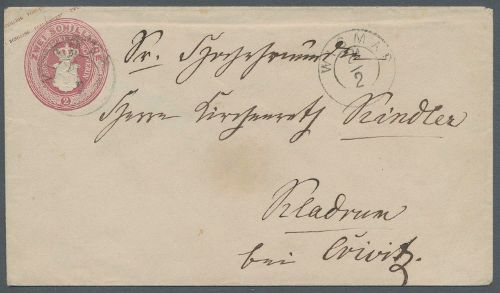 ZWEI SCHILLINGE
2
WISMAR
2
12
Sr. Hochehrwürden
Herrn Kirchenrath Kindler
Kladrum
bei Crivitz